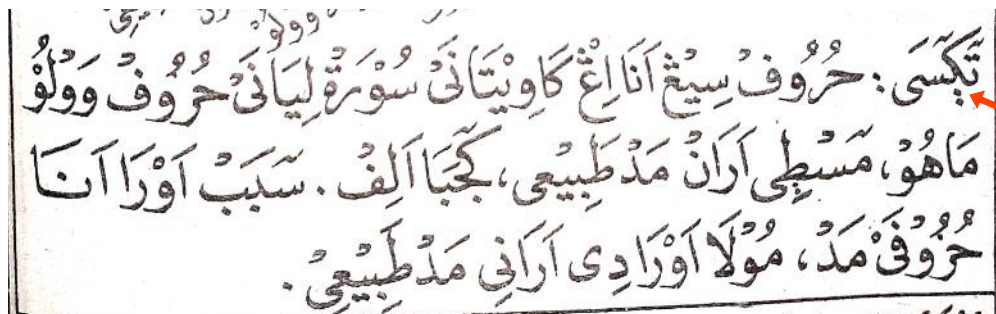 تٓڮٓسَى : حُرُوفْ سِيْڠْ اَنَا اِڠْ كَاوِيْتَانَىْ سُوْرَةْ لِيَانَىْ حُرُوفْ وَوْلُوْ
مَاهُوْ، مَسْطِى اَرَانْ مَدْ طَبِيْعِى، كٓجَبَا اَلِفْ . سَبَبْ اَوْرَا اَنَا
حُرُوْفَىْ مَدْ، مُوْلَا اَوْرَا دِى اَرَانِى مَدْ طَبِيْعِىْ .